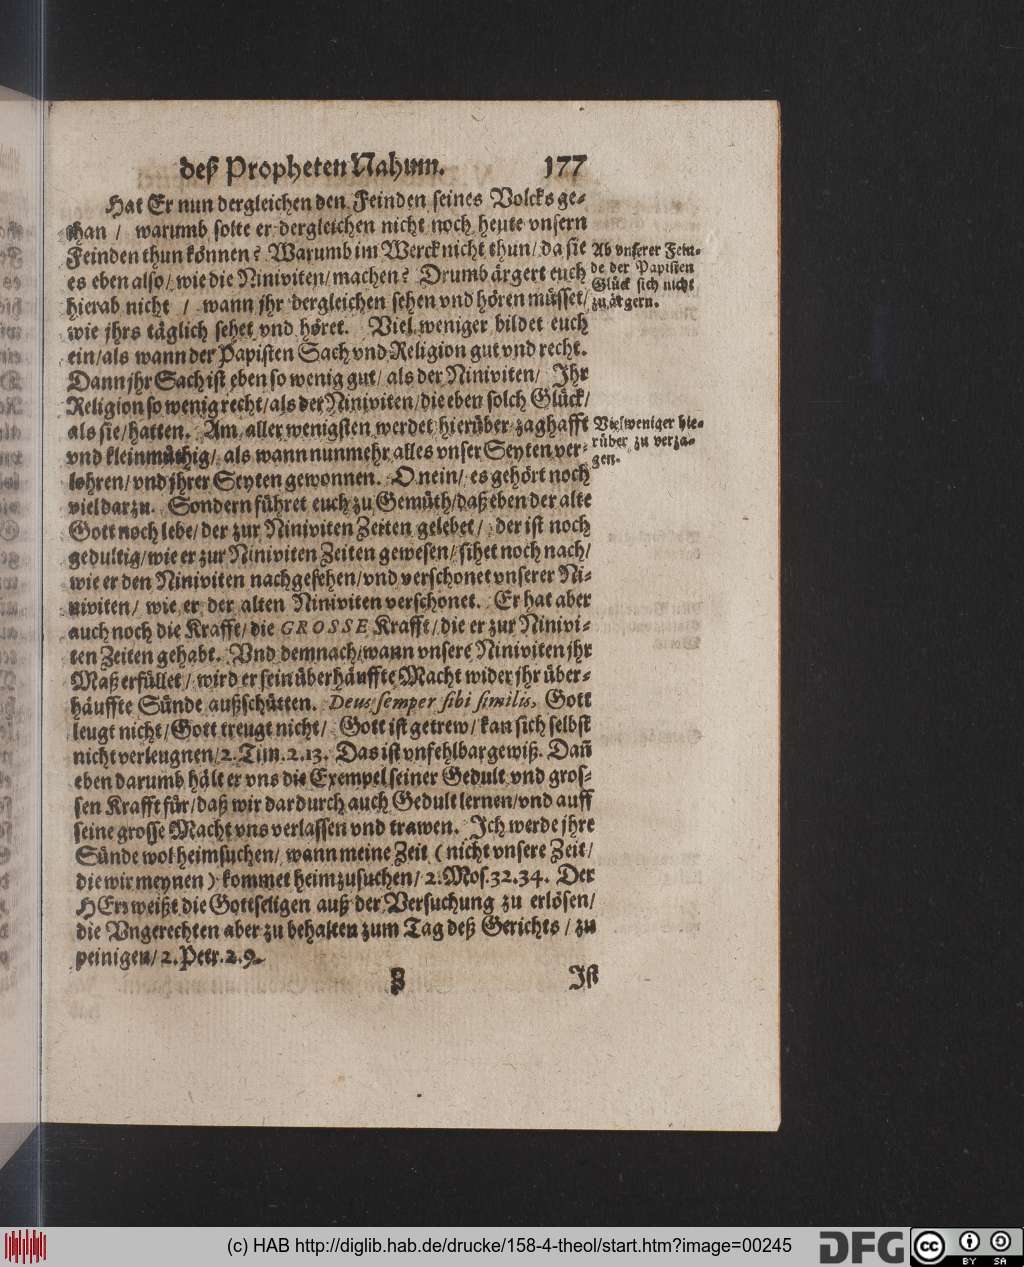 deß Propheten Nahum. 177
Hat Er nun dergleichen den Feinden seines Volcks ge-
than / warumb solte er dergleichen nicht noch heute vnsern
Feinden thun können? Warumb im Werck nicht thun/ da sie
es eben also/ wie die Niniviten/ machen? Drumb ärgert euch
hierab nicht / wann jhr dergleichen sehen vnd hören müsset/
wie jhrs täglich sehet vnd höret. Viel weniger bildet euch
ein/ als wann der Papisten Sach vnd Religion gut vnd recht.
Dann jhr Sach ist eben so wenig gut/ als der Niniviten/ Ihr
Religion so wenig recht/ als der Niniviten/ die eben solch Glück/
als sie/ hatten. Am aller wenigsten werdet hierüber zaghafft
vnd kleinmüthig/ als wann nunmehr alles vnser Seyten ver-
lohren/ vnd jhrer Seyten gewonnen. O nein/ es gehört noch
viel darzu. Sondern führet euch zu Gemüth/ daß eben der alte
Gott noch lebe/ der zur Niniviten Zeiten gelebet/ der ist noch
gedultig/ wie er zur Niniviten Zeiten gewesen/ sihet noch nach/
wie er den Niniviten nachgesehen/ vnd verschonet vnserer Ni-
niviten/ wie er der alten Niniviten verschonet. Er hat aber
auch noch die Krafft/ die GROSSE Krafft/ die er zur Ninivi-
ten Zeiten gehabt. Vnd demnach/ wann vnsere Niniviten jhr
Maß erfüllet/ wird er sein überhäuffte Macht wider jhr über-
häuffte Sünde außschütten. Deus semper sibi similis, Gott
leugt nicht/ Gott treugt nicht/ Gott ist getrew/ kan sich selbst
nicht verleugnen/ 2. Tim. 2. 13. Das ist vnfehlbar gewiß. Dañ
eben darumb hält er vns die Exempel seiner Gedult vnd gros-
sen Krafft für/ daß wir dardurch auch Gedult lernen/ vnd auff
seine grosse Macht vns verlassen vnd trawen. Ich werde jhre
Sünde wol heimsuchen/ wann meine Zeit (nicht vnsere Zeit/
die wir meynen) kommet heimzusuchen/ 2. Mos. 32. 34. Der
HErr weißt die Gottseligen auß der Versuchung zu erlösen/
die Vngerechten aber zu behalten zum Tag deß Gerichts / zu
peinigen/ 2. Petr. 2. 9.
Z Ist
Ab vnserer Fein-
de der Papisten
Glück sich nicht
zu ärgern.
Viel weniger hie-
rüber zu verza-
gen.
(c) HAB http://diglib.hab.de/drucke/158-4-theol/start.htm?image=00245
DFG
cc BY SA